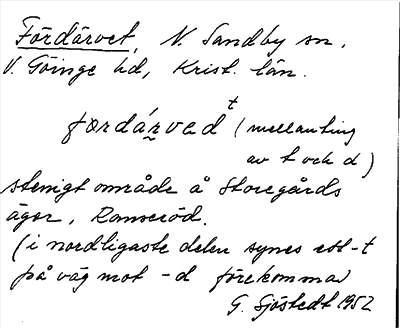 Fördärvet, N. Sandby sn,
V. Göinge hd, Krist. län.
fordárvadᵗ (mellanting
av t och d)
stenigt område å Storegårds
ägor, Ramseröd.
(i nordligaste delen synes ett -t
på väg mot -d förekomma)
G. Sjöstedt 1952